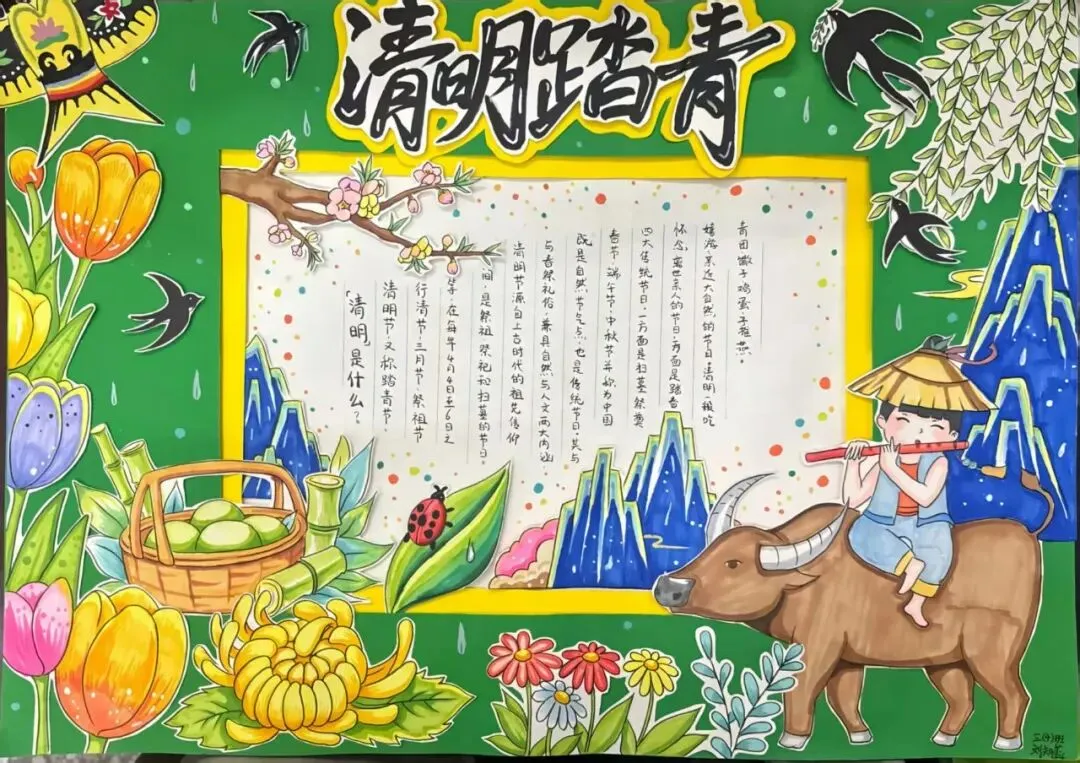 清明踏青
「清明」是什么?
清明节,又称踏青节,
行清节、三月节、祭祖节
等,在每年4月4日至6日之
间,是祭祖、祭祀和扫墓的节日。
清明节源自上古时代的祖先信仰
与春祭礼俗,兼具自然与人文两大内涵,
既是自然节气点,也是传统节日,其与
春节、端午节、中秋节并称为中国
四大传统节日。一方面是扫墓祭奠
怀念离世亲人的节日,方面是踏青
嬉游,亲近大自然的节日,清明一般吃
青团馓子鸡蛋子推燕。
三(4)班